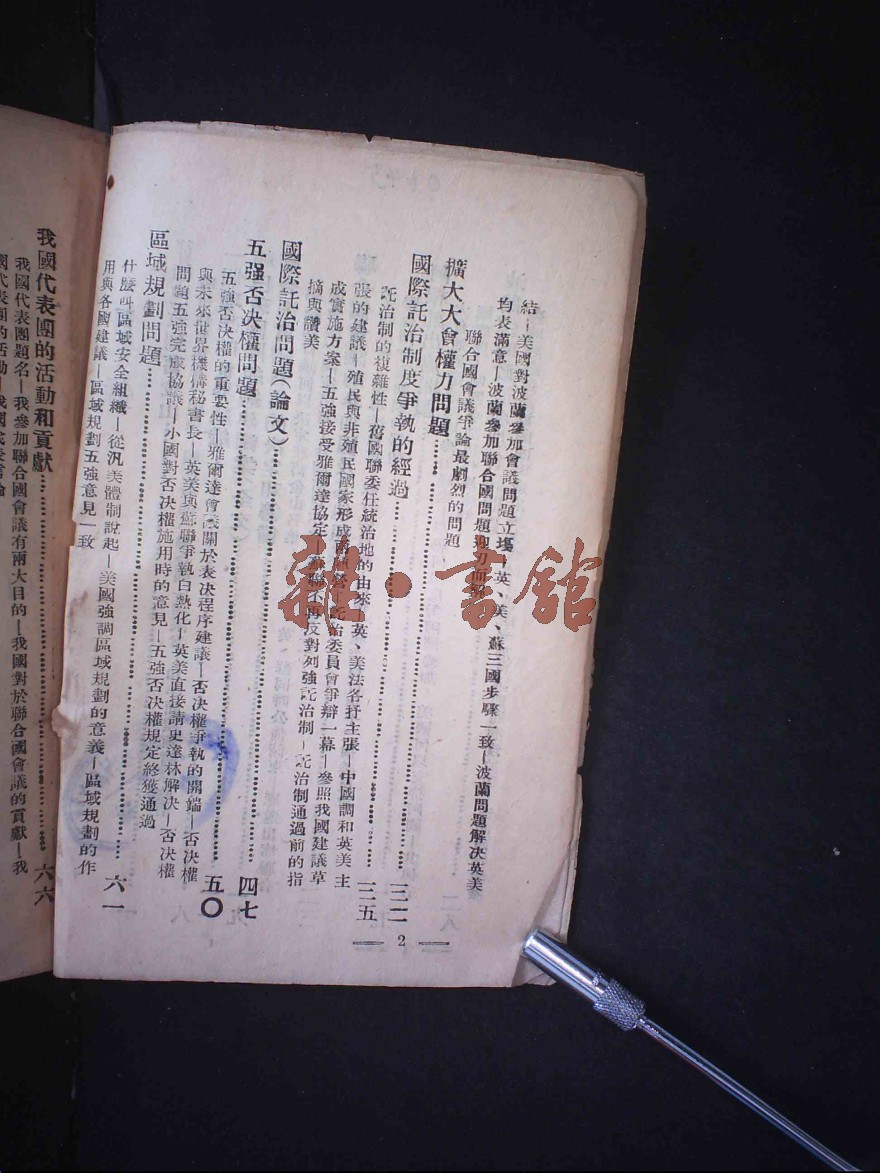 結—美國對波蘭參加會議問題立場—英、美、蘇三國步驟一致—波蘭問題解決英美
均表滿意—波蘭參加聯合國問題迎刃而解
擴大大會權力問題
三二
聯合國會議爭論最劇烈的問題
國際託治制度爭執的經過
三五
託治制的複雜性—舊國聯委任統治地的由來—英、美法各抒主張—中國調和英美主
張的建議—殖民與非殖民國家形成兩陣營—託治委員會爭辯一幕—參照我國建議草
成實施方案—五強接受雅爾達協定—蘇聯不再反對列強託治制—託治制通過前的指
摘與讚美
國際託治問題(論文)
四七
五强否决權問題
五〇
五強否決權的重要性—雅爾達會議關於表決程序建議—否決權爭執的開端—否決權
與未來世界機構秘書長—英美與蘇聯爭執白熱化—英美直接請史達林解決—否決權
問題五強完成協議—小國對否決權施用時的意見—五強否決權規定終獲通過
區域規劃問題
六一
什麼叫區域安全組織—從汎美體制說起—美國強調區域規劃的意義—區域規劃的作
用與各國建議—區域規劃五強意見一致
2
我國代表團的活動和貢獻
六六
我國代表團題名—我參加聯合國會議有兩大目的—我國對於聯合國會議的貢獻—我
雜·書館